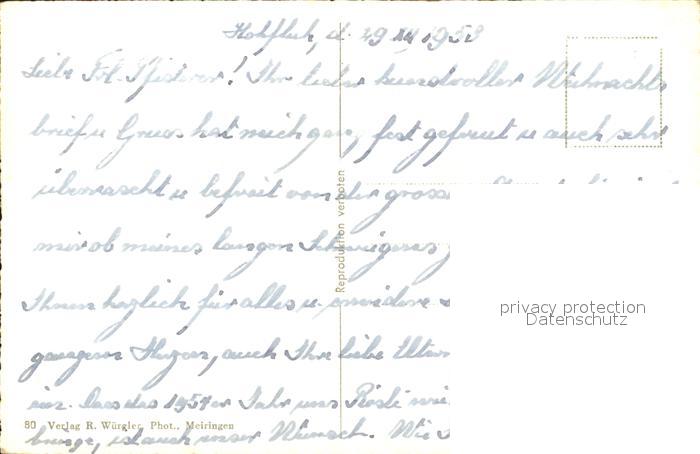 Hohfluh, d. 29 XII 1953
Liebe Frl. Pfisterer! Ihr lieber kunstvoller Weihnachts
brief u Gruss hat mich ganz fest gefreut u auch sehr
überrascht u befreit von der grosse
mir ob meines langen Schweigens
Ihnen herzlich für alles u erwidere
Herzen, auch Ihre liebe Eltern
ein. Dass das 1954er Jahr uns Rösli
bringe, ist auch unser Wunsch. Wie
Reproduktion verboten
80 Verlag R. Würgler, Phot., Meiringen
privacy protection
Datenschutz